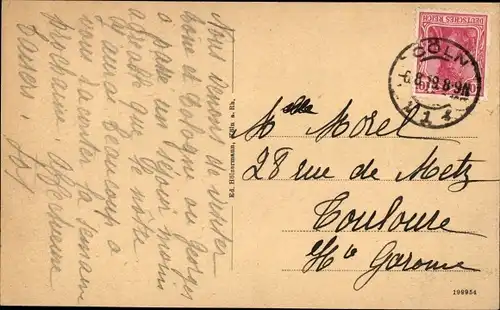 Nous venons de visiter
Bone et Cologne ou Georges
a passé un séjour moins
agréable que le nôtre
J'aurai beaucoup a
vous raconter la semaine
prochaine affectueux
baisers.
Ed. Hölzermann, Cöln a. Rh.
DEUTSCHES REICH
CÖLN
-6.8.19.8-9N
1
M Morel
28 rue de Metz
Toulouse
Hte Garonne
199954